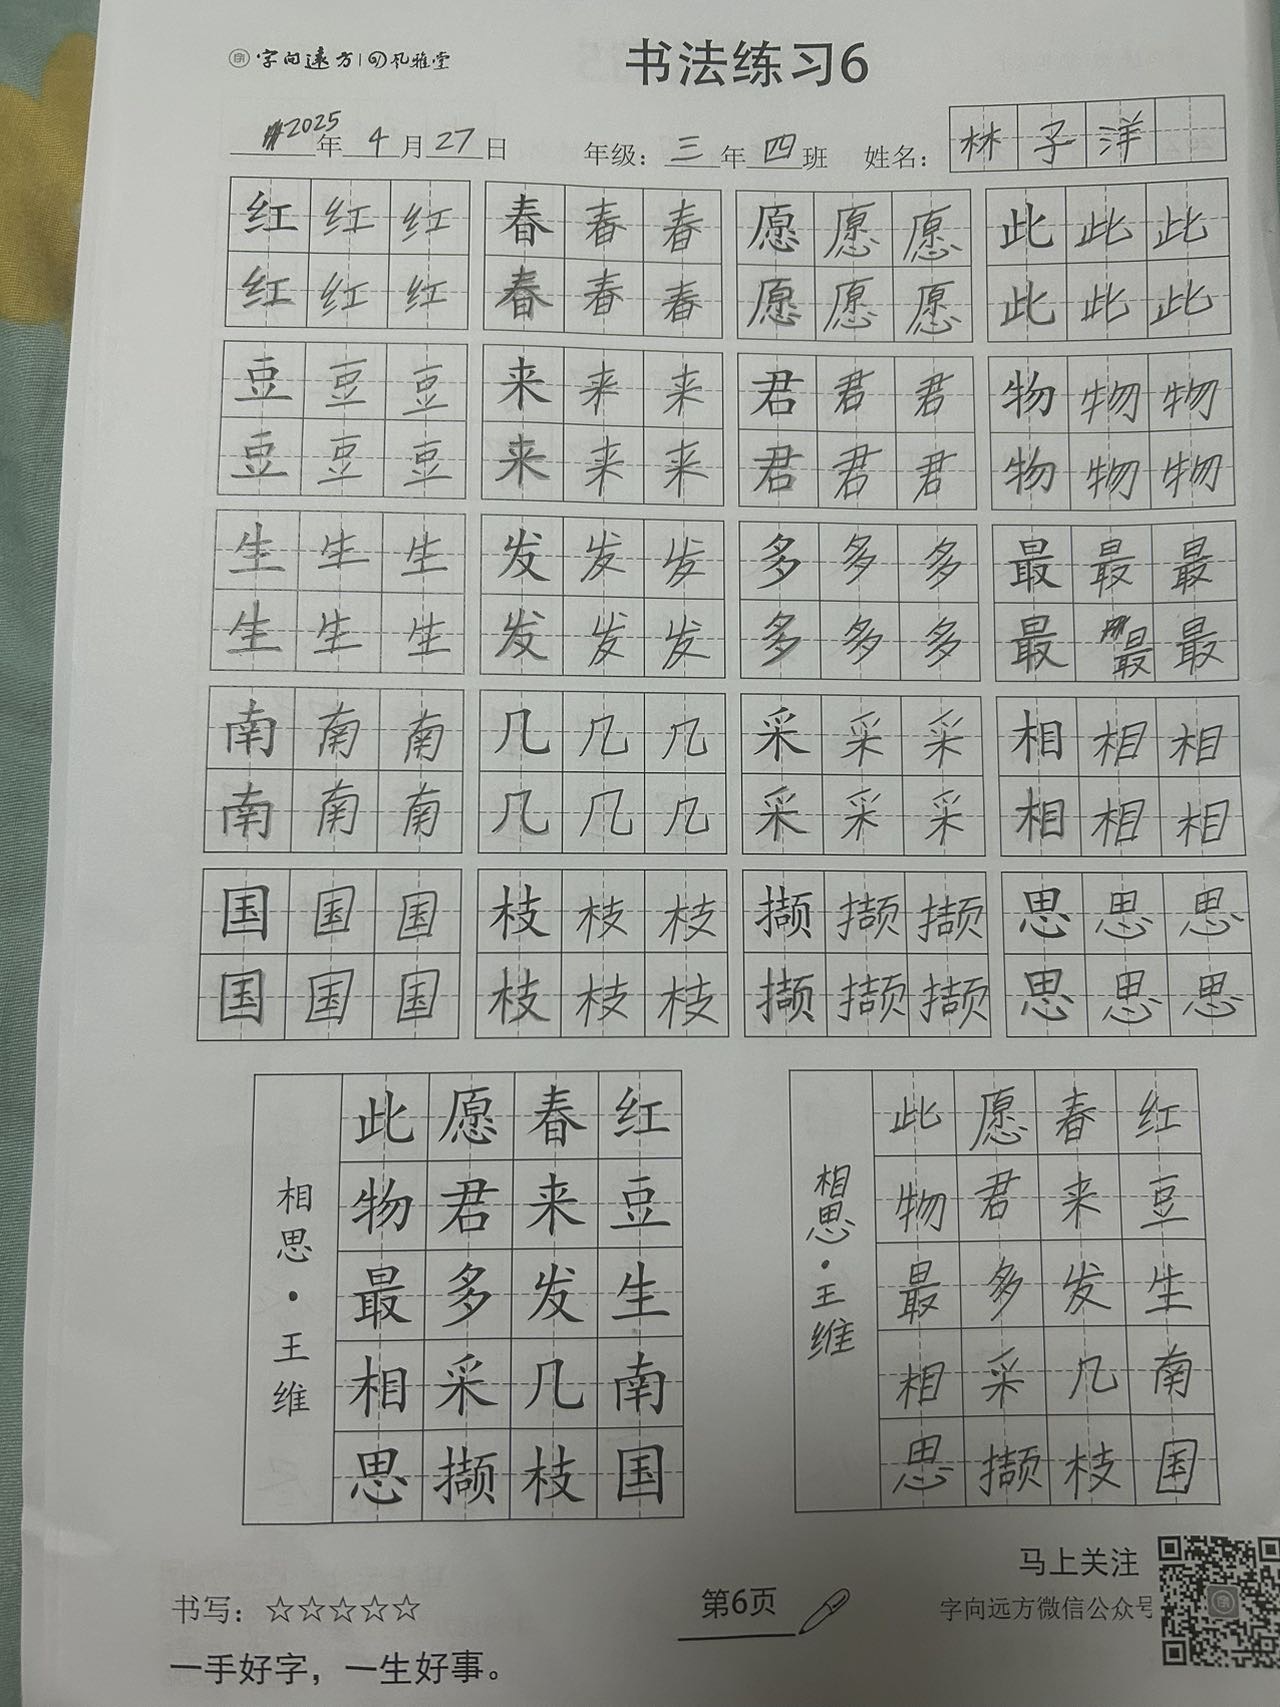 字向远方|风雅堂
书法练习6
2025年4月27日 年级：三年四班 姓名：林子洋
红红红 春春春 愿愿愿 此此此
红红红 春春春 愿愿愿 此此此
豆豆豆 来来来 君君君 物物物
豆豆豆 来来来 君君君 物物物
生生生 发发发 多多多 最最最
生生生 发发发 多多多 最最最
南南南 几几几 采采采 相相相
南南南 几几几 采采采 相相相
国国国 枝枝枝 撷撷撷 思思思
国国国 枝枝枝 撷撷撷 思思思
红豆生南国
春来发几枝
愿君多采撷
此物最相思
相思·王维
红豆生南国
春来发几枝
愿君多采撷
此物最相思
相思·王维
马上关注
书写：☆☆☆☆☆
第6页
字向远方微信公众号
一手好字，一生好事。